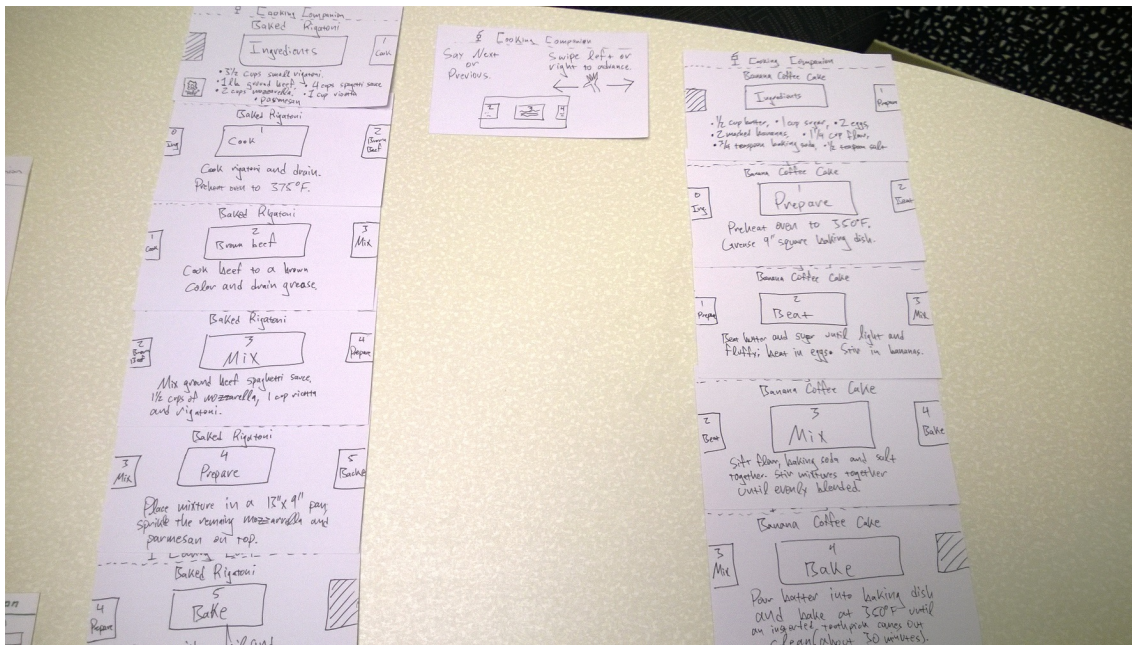 Cooking Companion
Baked Rigatoni
Ingredients
1
Cook
• 3 1/2 cups small rigatoni.
• 1 lb ground beef. • 4 cups spagetti sauce
• 2 cups mozzarella, • 1 cup ricotta
• parmesan
Baked Rigatoni
0
Ing
1
Cook
2
Brown
Beef
Cook rigatoni and drain.
Preheat oven to 375°F.
Baked Rigatoni
1
Cook
2
Brown beef
3
Mix
Cook beef to a brown
color and drain grease.
Baked Rigatoni
2
Brown
Beef
3
Mix
4
Prepare
Mix ground beef spaghetti sauce,
1 1/2 cups of mozzarella, 1 cup ricotta
and rigatoni.
Baked Rigatoni
3
Mix
4
Prepare
5
Bake
Place mixture in a 13"x 9" pan,
sprinkle the remaing mozzarella and
parmesan on top.
Baked Rigatoni
4
Prepare
5
Bake
Cooking Companion
Say Next
or
Previous.
Swipe left or
right to advance.
Cooking Companion
Banana Coffee Cake
Ingredients
1
Prepare
• 1/2 cup butter, • 1 cup sugar, • 2 eggs
• 2 mashed bananas, • 1 1/4 cup flour,
• 3/4 teaspoon baking soda, • 1/2 teaspoon salt
Banana Coffee Cake
0
Ing
1
Prepare
2
Beat
Preheat oven to 350°F.
Grease 9" square baking dish.
Banana Coffee Cake
1
Prepare
2
Beat
3
Mix
Beat butter and sugar until light and
fluffy; beat in eggs. Stir in bananas.
Banana Coffee Cake
2
Beat
3
Mix
4
Bake
Sift flour, baking soda and salt
together. Stir mixtures together
until evenly blended.
Banana Coffee Cake
3
Mix
4
Bake
Pour batter into baking dish
and bake at 350°F until
an inserted toothpick comes out
clean (about 30 minutes).